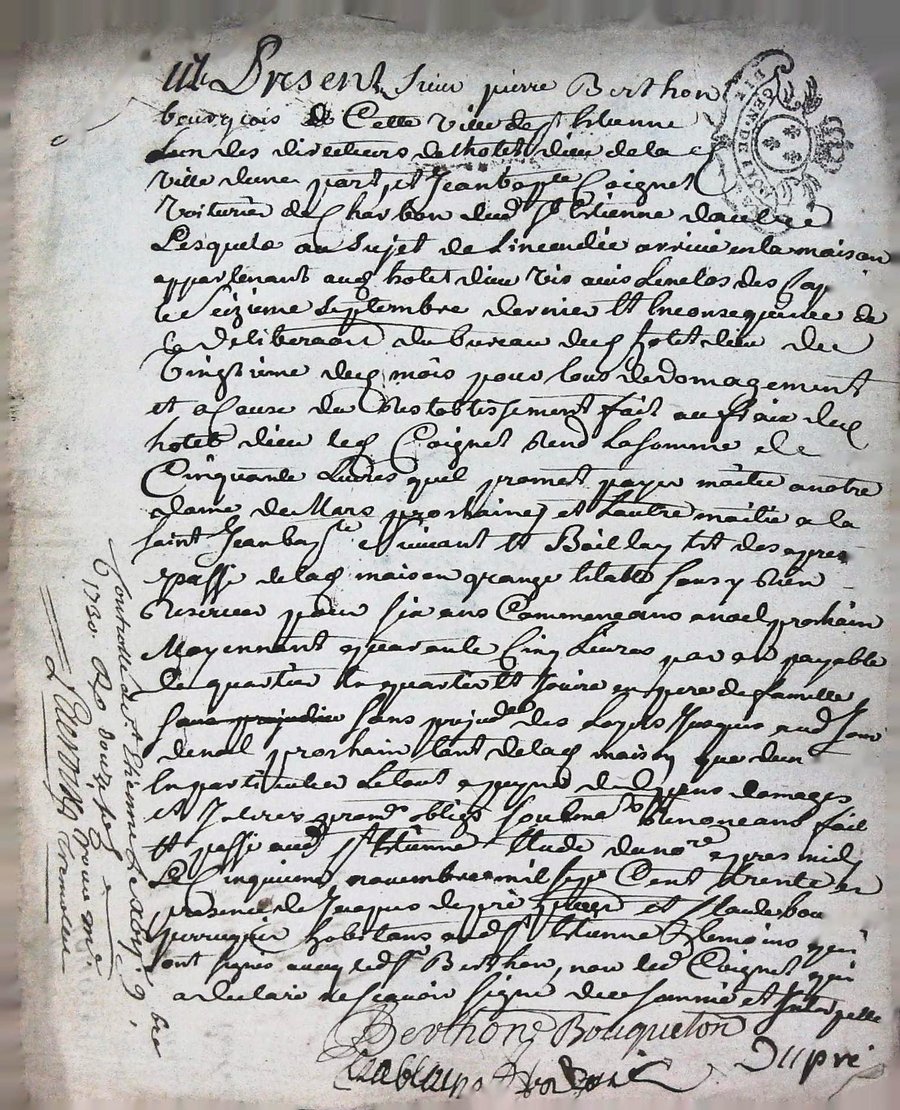 Present Sieur pierre Berthon
bourgeois de Cette Ville de st Etienne
Lun des directeurs de lhotel dieu de la
Ville dune part et Jean bapte Coignet
Voiturier de Charbon dud st Etienne dautre
Lesquels au Sujet de Lincendie arrivé en la maison
appartenant aud hotel dieu Vis avis Lenclos des Cap
le Seizieme Septembre dernier Et Inconsequence de
la deliberaon du bureau dud hotel dieu de
Vingtieme dud mois pour tous dedomagement
et a Cause du Restablissement fait aux fraix dud
hotel dieu led Coignet Rend La Somme de
Cinquante Livres quil promet payer moitie a notre
dame de Mars prochaine et Lautre moitie a la
saint Jean bapte Suivant Et Bail
passé de lad maison grange Etable Sans y Rien
Reserver pour six ans Commenceans a noel prochain
Moyennant quarante Cinq Livres par an payable
de quartier En quartier Et Jouire en pere de famille
sans prejudice Sans prejud des Loyers Jusques aud Jour
de noel prochain tant de lad maison que dun
En particulier Le tout a peyne de d dpens domages
et Interes oblige Soubme Renonceans fait
Et passé aud st Etienne Etude du nore apres midy
Le Cinquieme novembre mil sept Cent trente en
presence de Jacques depré et Claude bou
perruquier habitans aud st Etienne temoins qui
ont signé avec led sr Berthon, non led Coignet qui
a declaré ne Scavoir signé de ce sommé et Interpellé
Berthon Bouqueton
Dupré
Controllé a st Etienne Le
1730. Rs douze sols